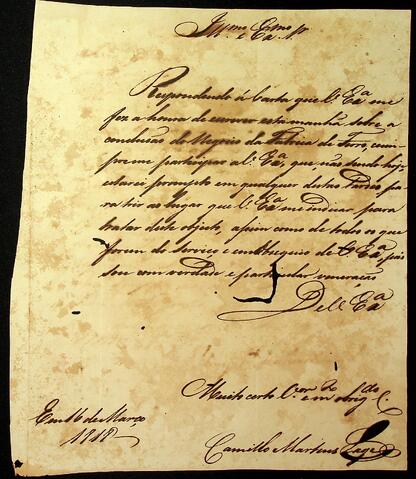 Illmo e Exmo Sr
Respondendo á Carta que V. Exa me
fez a honra de escrever esta manhã sobre a
conclusão do Negocio da Fabrica de Ferro, cum-
pre me participar a V. Exa, que não sendo hoje
estarei prompto em qualquer destes Dias pa
ra hir ao lugar que V. Exa me indicar para
tratar deste objecto, assim como de todos os que
forem do Serviço e em Obsequio de V. Exa, pois
sou com verdade e particular veneração
De V. Exa
Muito certo Vor e obrigdo C.
Em 16 de Março
1818
Camillo Martins Lage